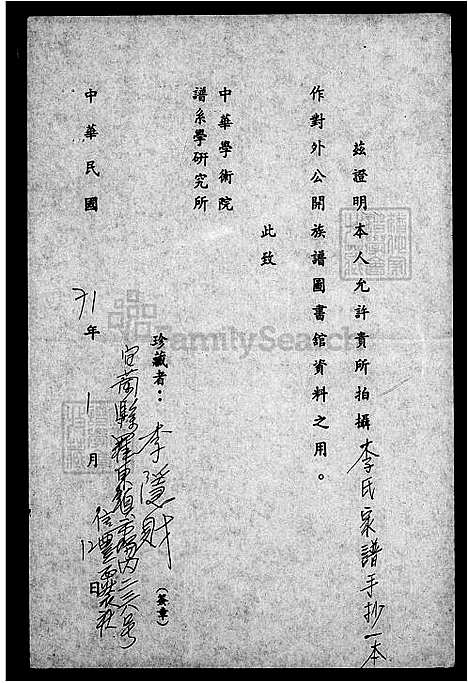 茲證明本人允許貴所拍攝李氏家譜手抄一本
作對外公開族譜圖書館資料之用。
此致
中華學術院
譜系學研究所
珍藏者：李隱財(簽章)
宜蘭縣羅東鎮
中華民國71年1月12日
FamilySearch